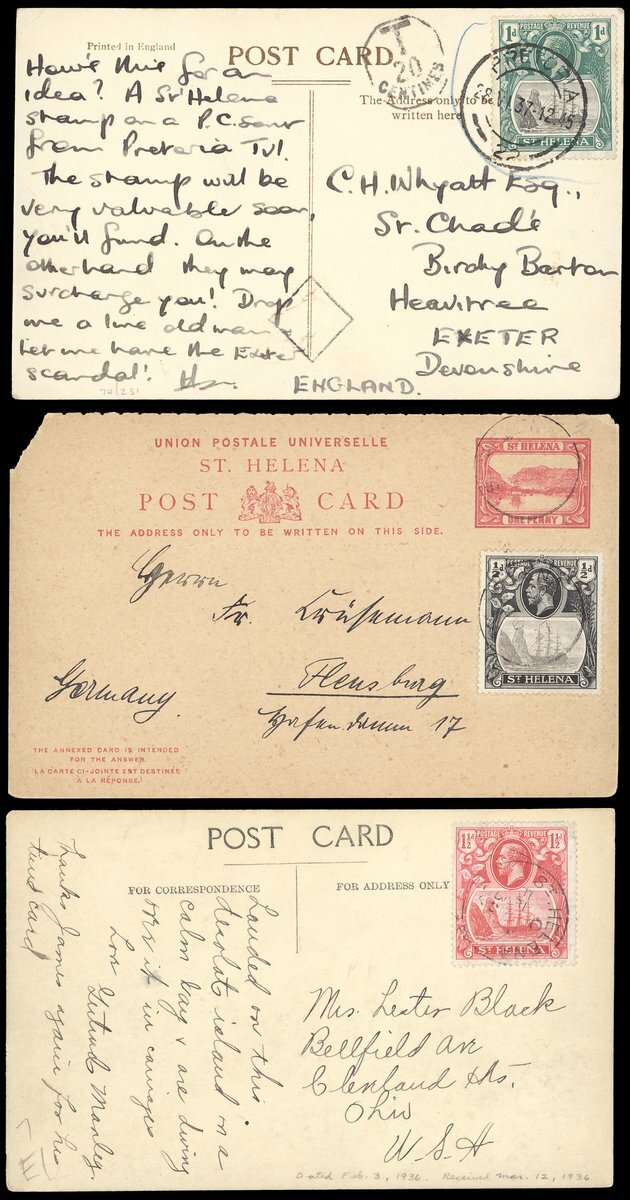 Printed in England
POST CARD
T
20
CENTIMES
The Address only to be
written here
1d POSTAGE & REVENUE 1d
ST HELENA
PRETORIA
28 VI 37 - 12 15
22
How's this for an
idea? A St Helena
stamp on a P.C. sent
from Pretoria Tvl.
The stamp will be
very valuable soon,
you'll find. On the
other hand they may
surcharge you! Drop
me a line old man
Let me have the Exeter
scandal!
70/251
C.H. Whyatt Esq.,
St. Chad's
Birchy Barton
Heavitree
EXETER
Devonshire
ENGLAND.
UNION POSTALE UNIVERSELLE
ST. HELENA
POST CARD
THE ADDRESS ONLY TO BE WRITTEN ON THIS SIDE.
ST HELENA
ONE PENNY
½d POSTAGE & REVENUE ½d
ST HELENA
Herrn
Fr. Krüsemann
Flensburg
Hafendamm 17
Germany.
THE ANNEXED CARD IS INTENDED
FOR THE ANSWER.
(LA CARTE CI-JOINTE EST DESTINÉE
À LA RÉPONSE.)
POST CARD
FOR CORRESPONDENCE
FOR ADDRESS ONLY
1½d POSTAGE REVENUE 1½d
ST HELENA
ST. HELENA
Landed on this
desolate island on a
calm day & are driving
over it in carriages
Love Gertrude Manley.
Thanks James again for his
time card
Mrs. Lester Black
Bellfield Ave
Cleveland Hts.
Ohio
U.S.A
Dated Feb. 3, 1936. Received Mar. 12, 1936